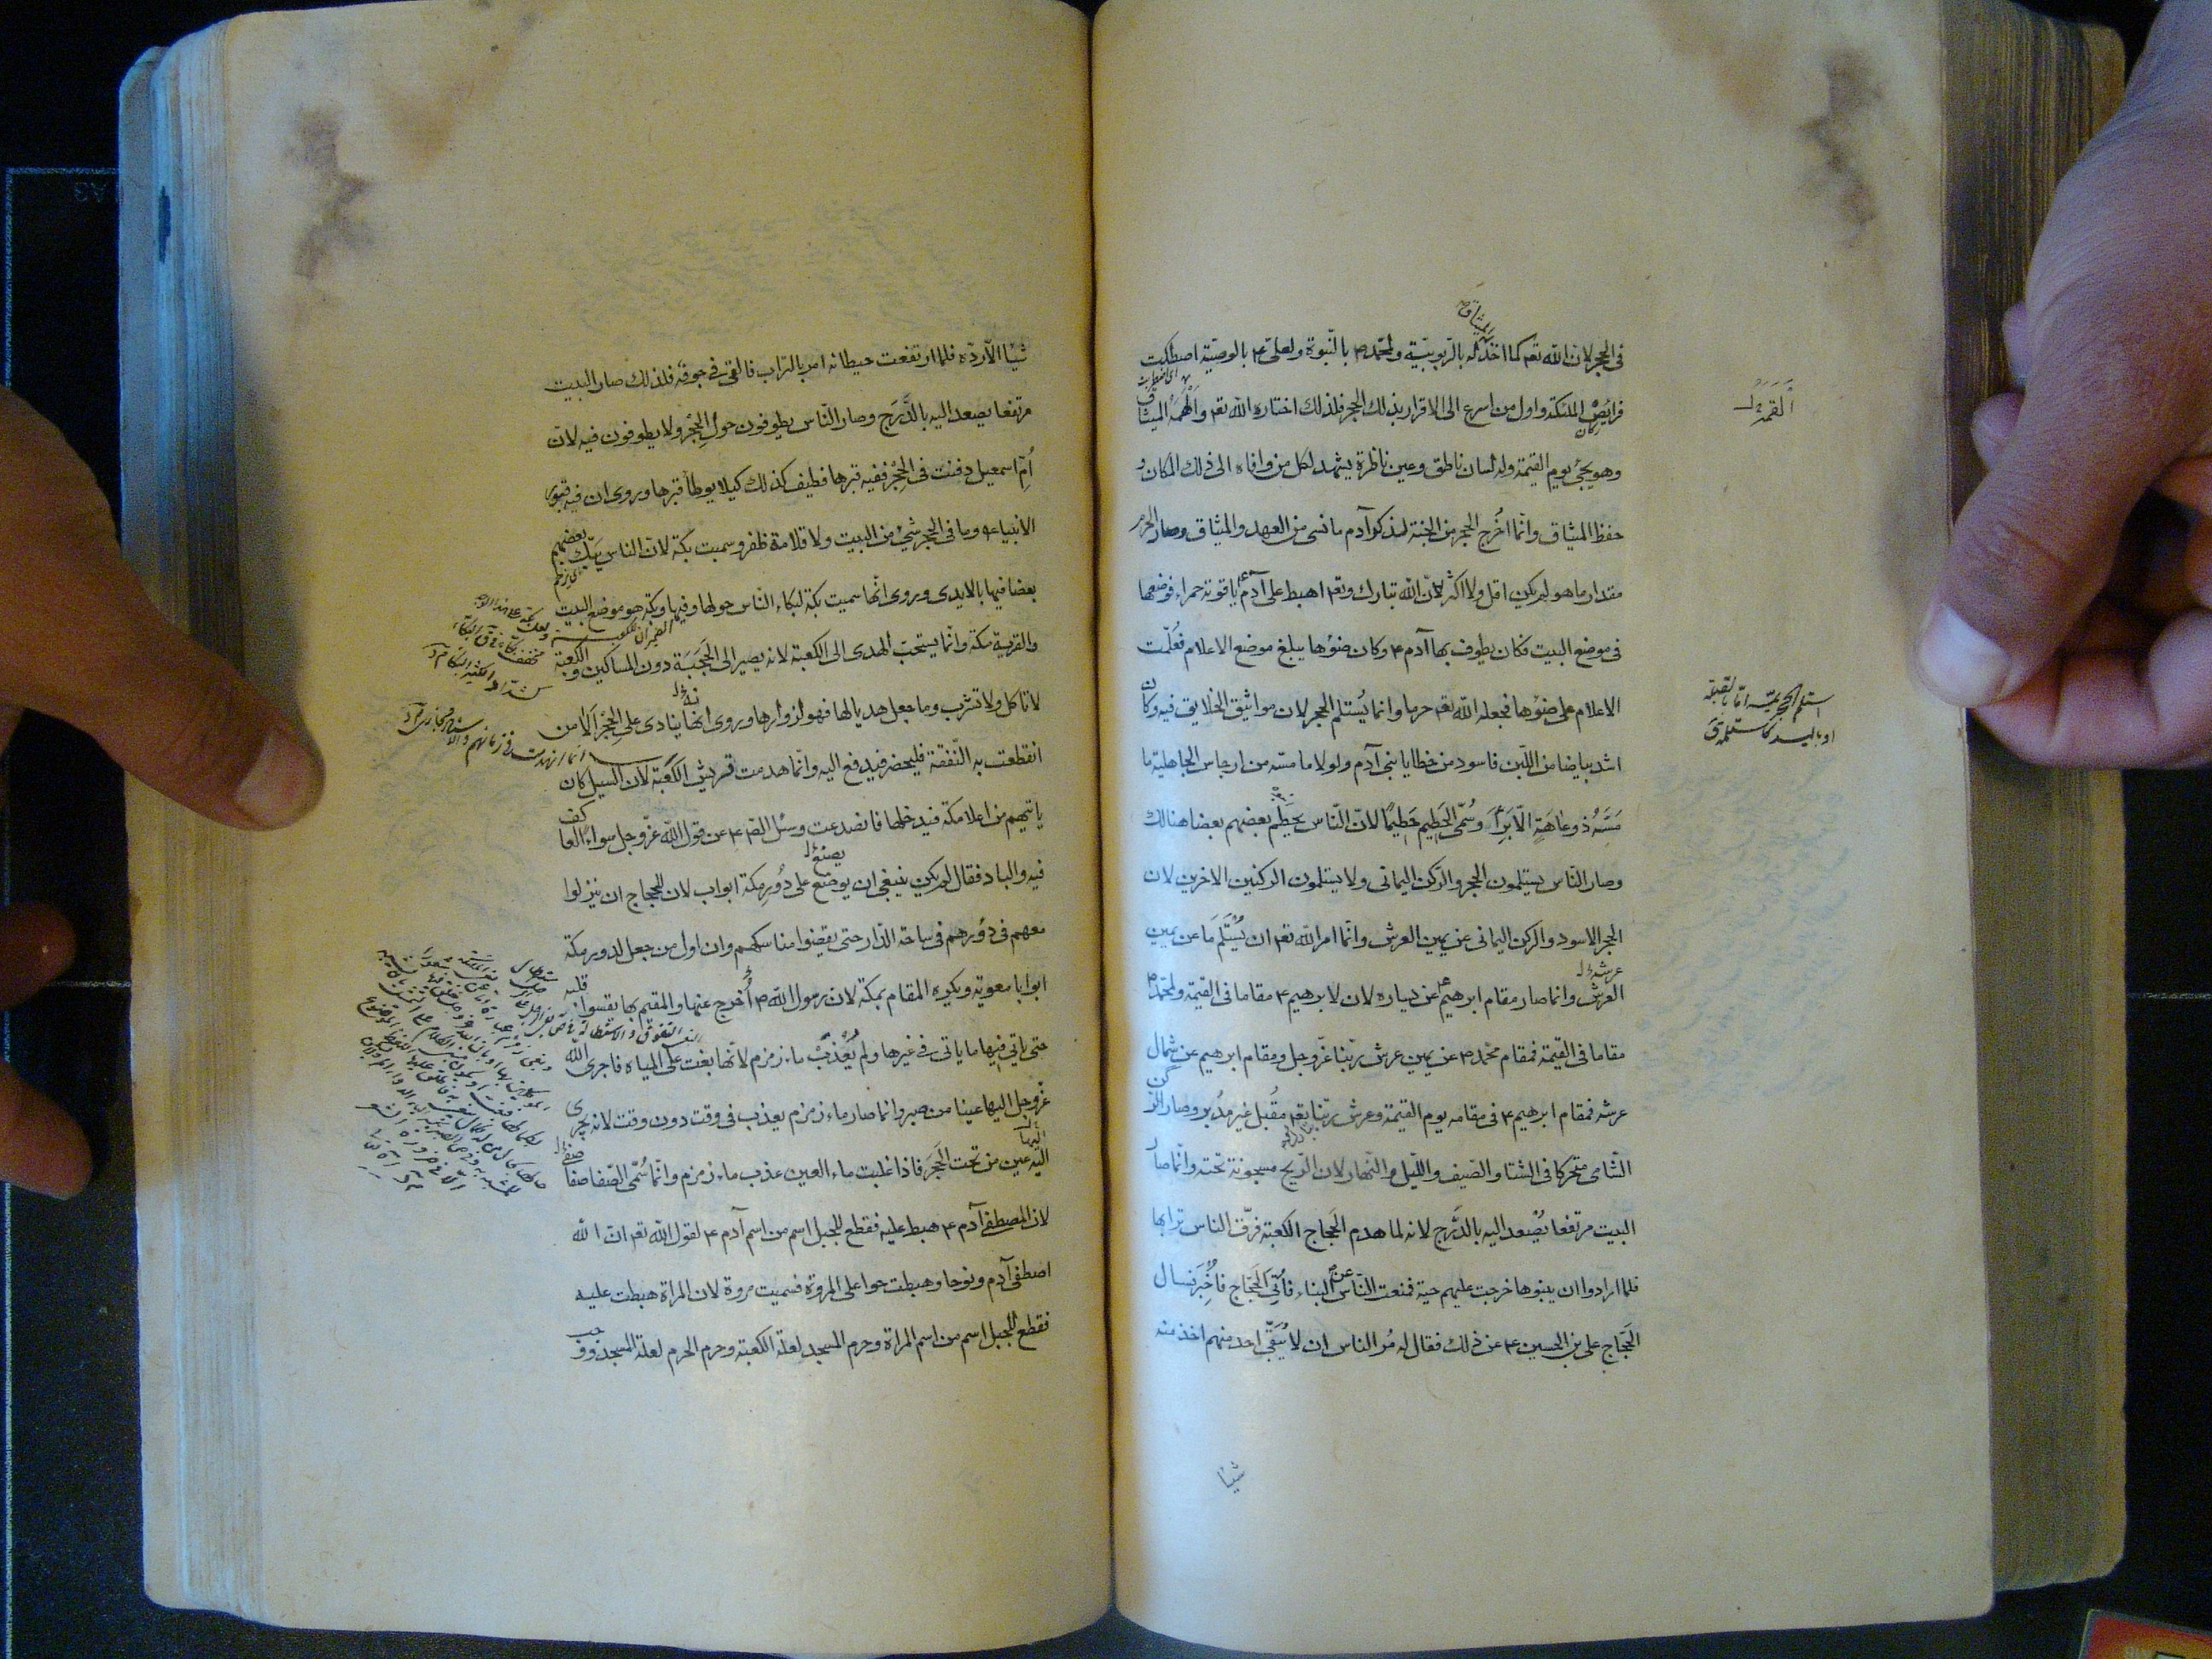 في الحجر لان الله تع لما اخذ له بالربوبيّة ولمحمّد ص بالنبوة ولعلیّ ع بالوصيّة اصطكت
فرايص الملئكة واول من اسرع الى الاقرار بذلك الحجر فلذلك اختاره الله تع والقمه الميثاق
وهو يجئ يوم القيمة وله لسان ناطق وعين ناظرة يشهد لكل من وافاه الى ذلك المكان و
حفظ الميثاق وانّما اخرج الحجر من الجنة ليذكر آدم ما نسى من العهد والميثاق وصار الحرم
مقدار ما هو لم يكن اقل ولا اكثر لانّ الله تبارك وتع اهبط على آدم ع ياقوتة حمراء فوضعها
في موضع البيت فكان يطوف بها آدم ع وكان ضوئها يبلغ موضع الاعلام فعُلّمت
الاعلام على ضوئها فجعله الله تع حرما وانما يُستلم الحجر لان مواثيق الخلايق فيه وكان
اشد بياضا من اللّبن فاسود من خطايا بنى آدم ولولا ما مسّه من ارجاس الجاهلية ما
مَسَّهُ ذو عاهَةٍ الّا بَرَأَ وسُمّى الحَطِيم حَطِيمًا لانّ النّاس يحطِم بعضهم بعضا هنالك
وصار النّاس يستلمون الحجر والركن اليمانى ولا يستلمون الركنين الاخرين لان
الحجر الاسود والركن اليمانى عن يمين العرش وانّما امر الله تع ان يُسْتَلَمَ ما عن يمين
عرشه
العرش وانما صار مقام ابرهيم ع عن يساره لان لابرهيم ع مقاما في القيمة ولمحمّد ص
مقاما في القيمة فمقام محمّد ص عن يمين عرش ربّنا عزّ وجل ومقام ابرهيم عن شمال
عرشه فمقام ابرهيم ع في مقامه يوم القيمة وعرش ربّنا تع مُقبل غير مُدبر وصار الركن
الشّامى متحركا في الشتا والصّيف واللّيل والنّهار لان الرّيح مسجونة تحته وانّما صار
البيت مرتفعا يُصْعد اليه بالدَّرج لانه لما هدم الحَجاج الكعبة فرّق الناس ترابها
فلما ارادوا ان يبنوها خرجت عليهم حية فمنعت النّاس عن البناء فأُتِىَ الحَجّاج فأُخبِر فسال
الحَجّاج علی بن الحسين ع عن ذلك فقال له مُر الناس ان لا يَبْقى احد منهم اخذ منه
شيئا
شيئا الّا ردّه فلما ارتفعت حيطانه امر بالتراب فالقى في جوفه فلذلك صار البيت
مرتفعا يصعد اليه بالدَّرَج وصار النّاس يطوفون حول الحِجْر ولا يطوفون فيه لانّ
اُمّ اسمعيل دفنت في الحِجْر ففيه قبرها فطيف كذلك كيلا يوطأ قبرها وروى ان فيه قبور
الانبياء ع وما في الحجر شئ من البيت ولا قلامة ظفر وسميت بكة لانّ الناس يبكّ بعضهم
بعضا فيها بالايدى وروى انّها سميت بكة لبكاء النّاس حولها وفيها وبكة هو موضع البيت
والقرية مكة وانّما يستحبّ الهدى الى الكعبة لانه يصير الى الحَجَبَة دون المساكين والكعبة
لا تاكل ولا تشرب وما جعل هديا لها فهو لزوارها وروى انّها ينادى على الحِجْر الا من
انقطعت به النّفقة فليحضر فيدفع اليه وانّما هدمت قريش الكعبة لان السيل كان
ياتيهم من اعلا مكة فيدخلها فانصدعت وسئل الصّ ع عن قول الله عزّ وجل سواءً العاكف
فيه والباد فقال لم يكن ينبغى ان يوضع على دُور مكة ابواب لان للحجاج ان ينزلوا
معهم في دُورهم في ساحة الدّار حتى يقضوا مناسكهم وان اول من جعل لدور مكة
ابوابا معوية ويكره المقام بمكة لان رسول الله ص أُخرج عنها والمقيم بها يقسوا قلبه
حتى ياتي فيها ما ياتى في غيرها ولم يَعْذُبْ ماء زمزم لانّها بغت على المياه فاجرى الله
عزّ وجل اليها عينا من صبر وانما صار ماء زمزم يعذب في وقت دون وقت لانه يجرى
اليه عين من تحت الحَجَر فاذا غلبت ماء العين عذب ماء زمزم وانّما سُمّى الصّفا صفا
لان المصطفى آدم ع هبط عليه فقطع للجبل اسم من اسم آدم ع لقول الله تع ان الله
اصطفى آدم ونوحا وهبطت حوا على المروة فسميت مروة لان المراة هبطت عليه
فقطع للجبل اسم من اسم المراة وحرم المسجد لعلة الكعبة وحرم الحرم لعلة المسجد ووجب